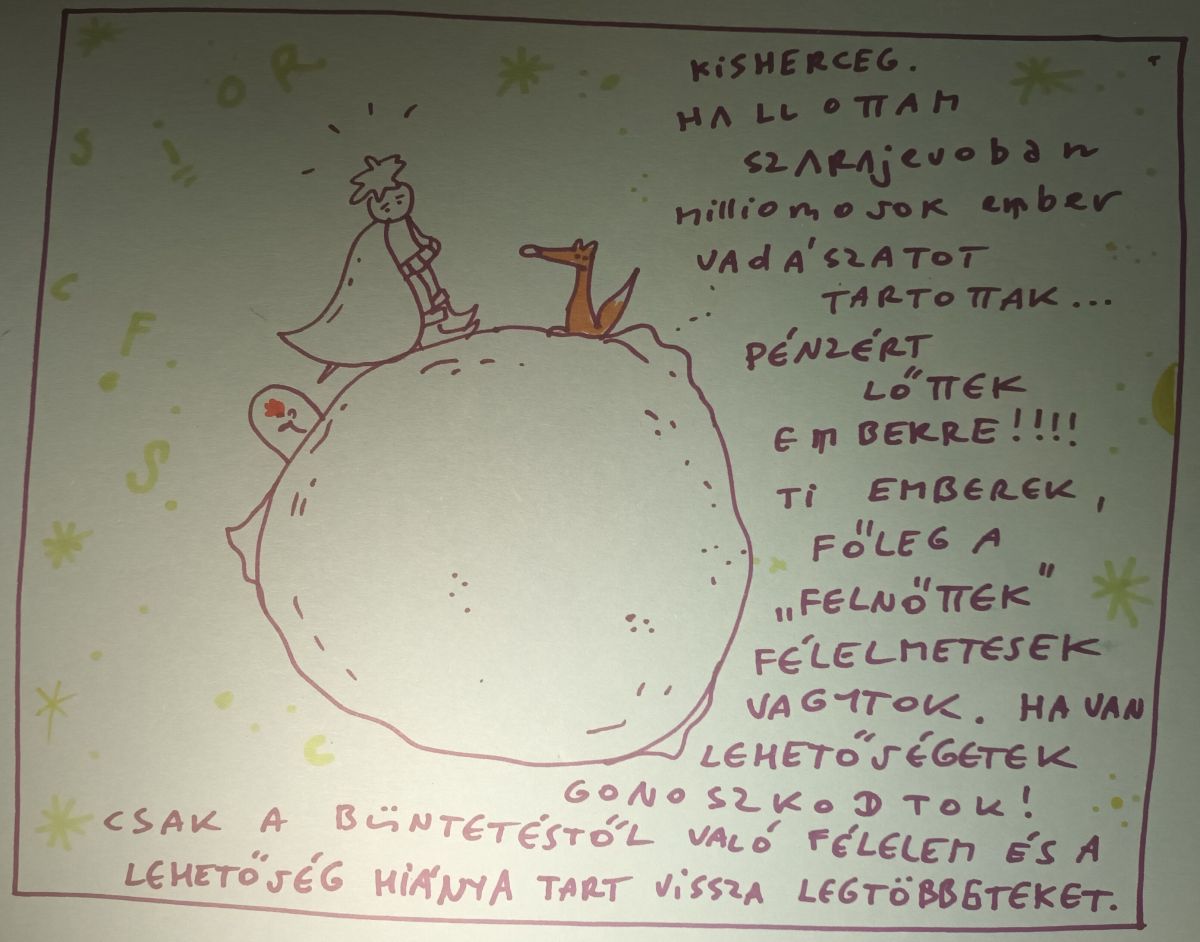 KISHERCEG.
HALLOTTAM
SZARAjevoban
milliomosok ember
VAdÁSZATOT
TARTOTTAK...
PÉNZÉRT
LŐTTEK
EMBERRE!!!!
Ti EMBEREK,
FŐLEG A
„FELNŐTTEK"
FÉLELMETESEK
VAGYTOK. HA VAN
LEHETŐSÉGETEK
GONOSZKODTOK!
CSAK A BÜNTETÉSTŐL VALÓ FÉLELEM ÉS A
LEHETŐSÉG HIÁNYA TART VISSZA LEGTÖBBETEKET.